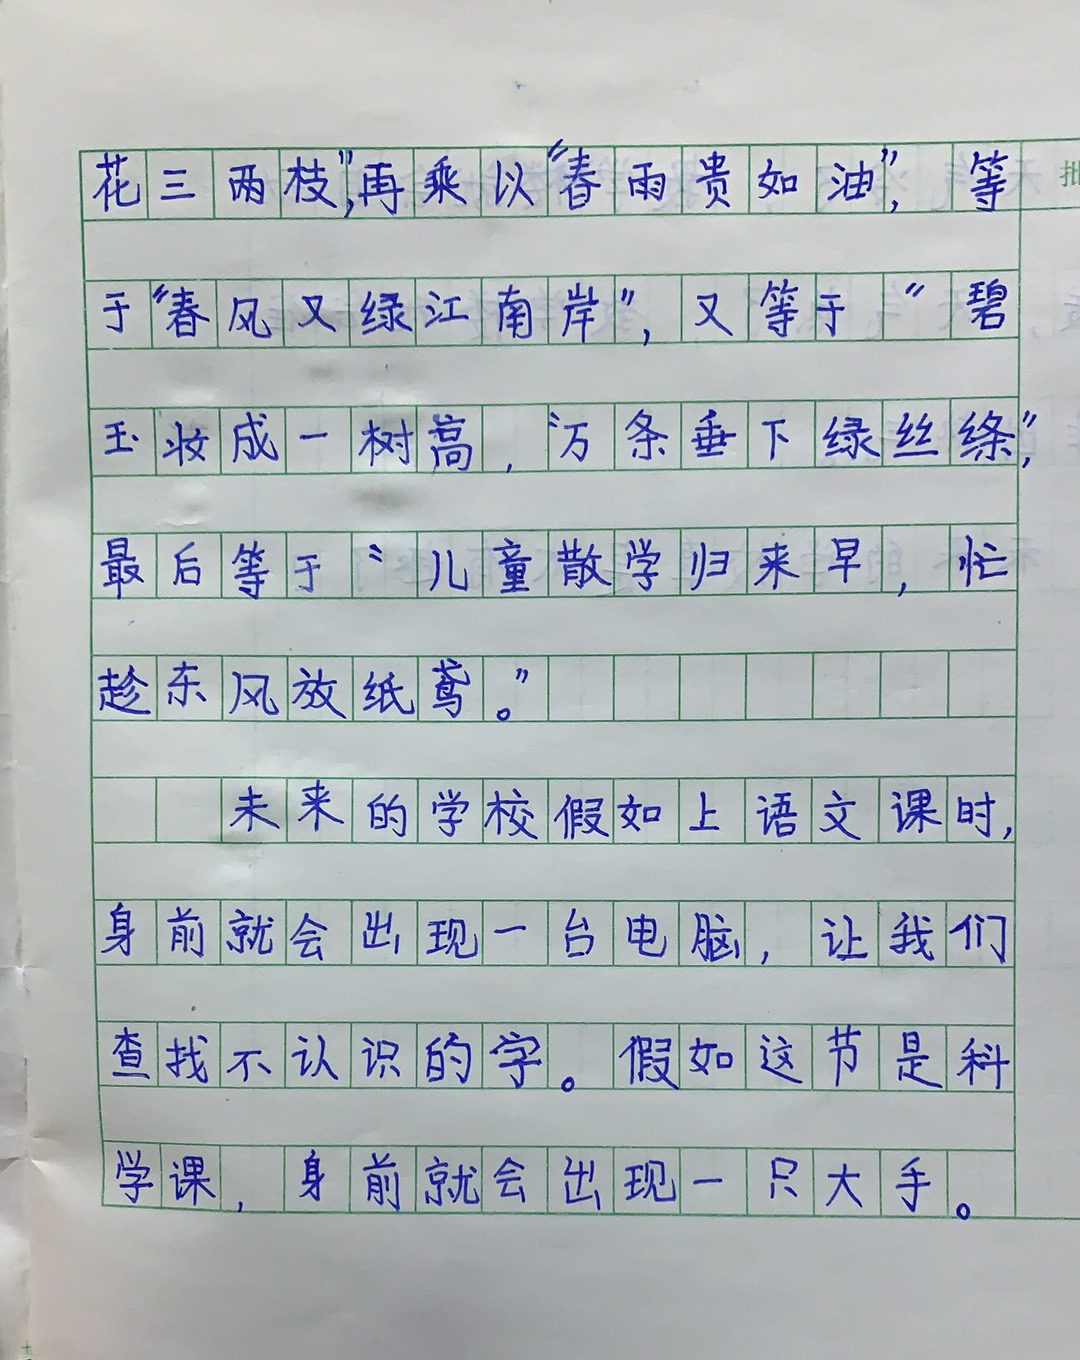 花三两枝”,再乘以“春雨贵如油”,等
于“春风又绿江南岸”,又等于“碧
玉妆成一树高,“万条垂下绿丝绦”,
最后等于“儿童散学归来早,忙
趁东风放纸鸢。”
未来的学校假如上语文课时,
身前就会出现一台电脑,让我们
查找不认识的字。假如这节是科
学课,身前就会出现一只大手。
批